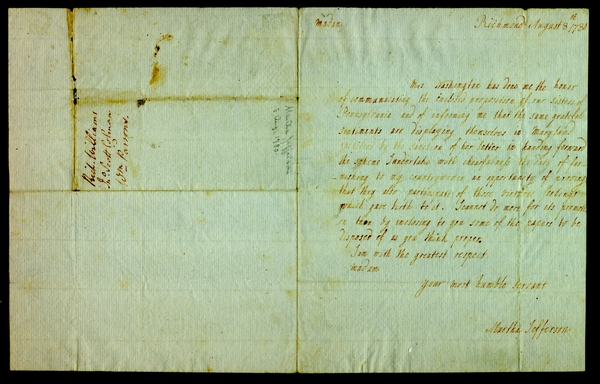 Madam
Richmond August 8th 1780
Mrs Washington has done me the honor
of communicating the inclosed proposition of our sisters of
Pennsylvania and of informing me that the same grateful
sentiments are displaying themselves in Maryland
justified by the sanction of her letter in handing forward
the scheme I undertake with chearfulness the duty of fur
nishing to my countrywomen an opportunity of proving
that they also participate of those virtuous feelings
which gave birth to it. I cannot do more for its promoti
on than by inclosing to you some of the papers to be
disposed of as you think proper.
I am with the greatest respect
Madam
Your most humble servant
Martha Jefferson
Rich. Williams
Scott
Wm Parsons.
Martha Jefferson
8 Aug. 1780